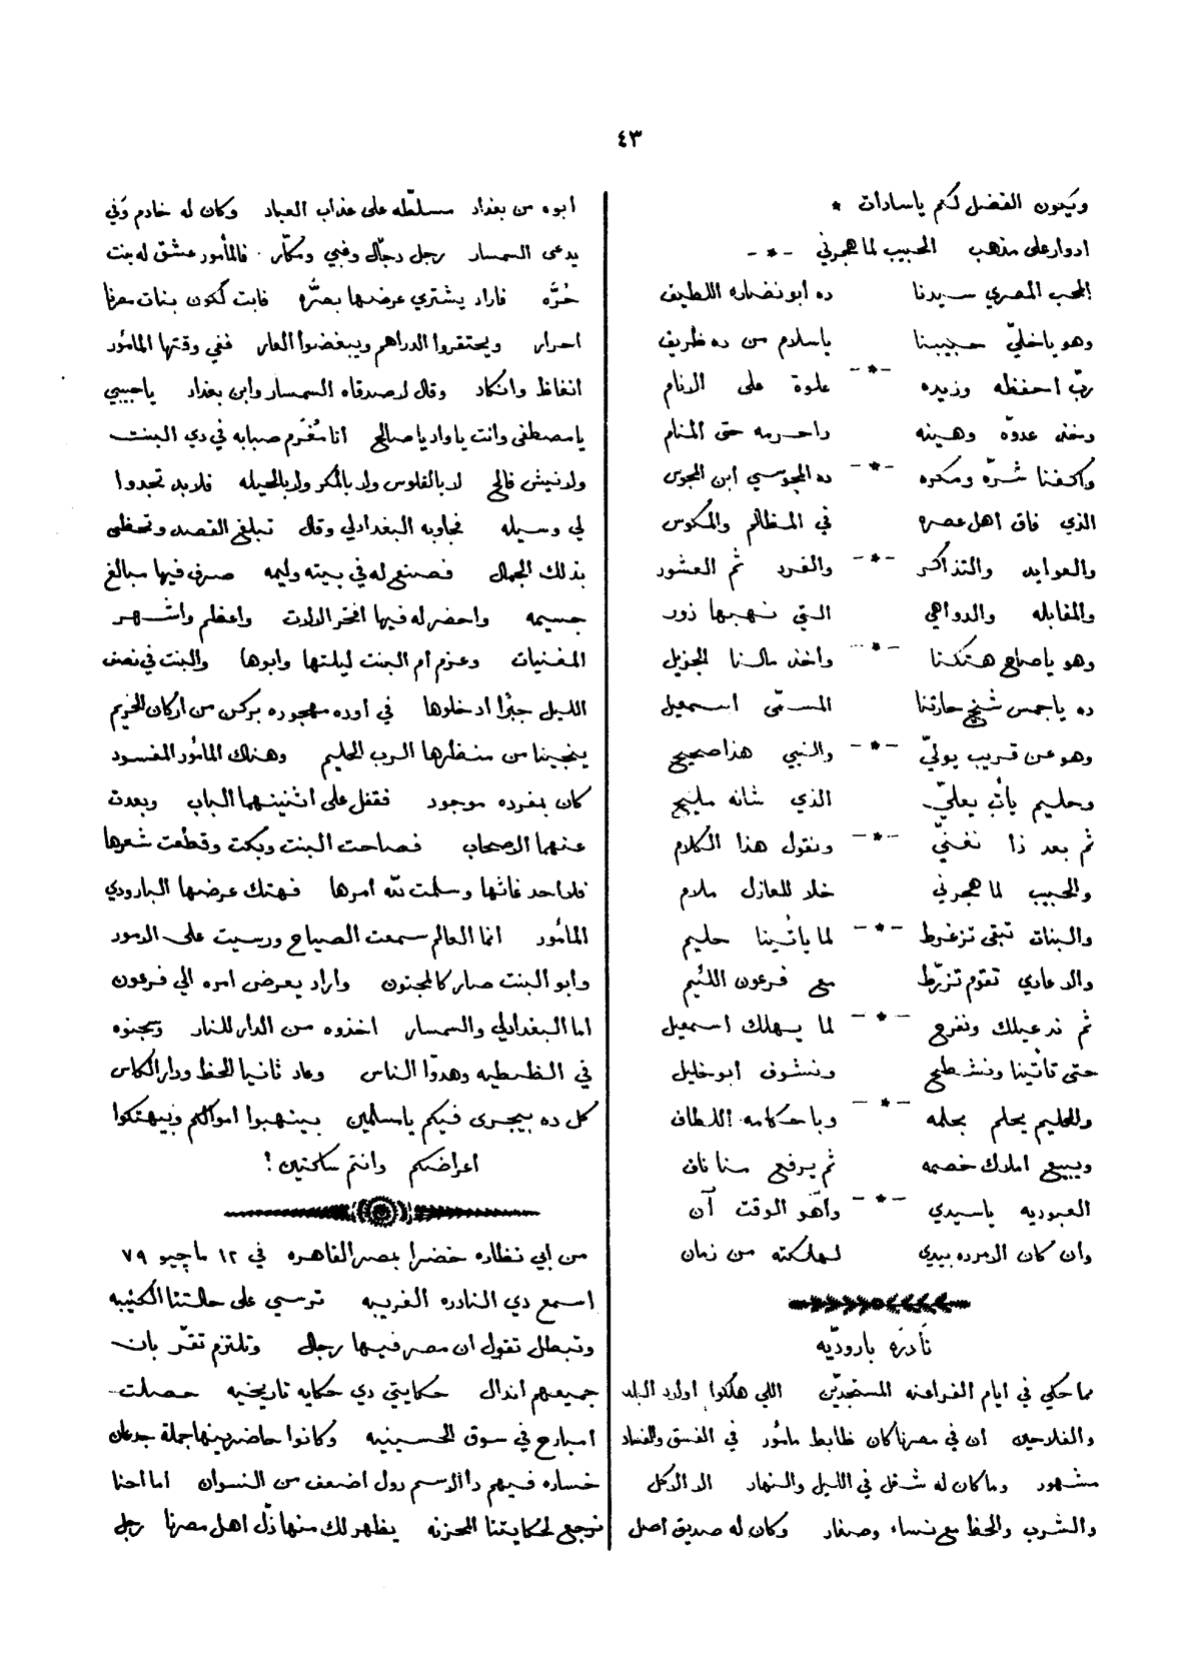 ٤٣
ويكون الفضل لكم ياسادات *
ادوار على مذهب الحبيب لما هجرني -*-
المحب المصري سيدنا ده ابو نضاره اللطيف
وهو ياخليّ حبيبنا ياسلام من ده ظريف
-*-
ربّ احفظه وزيده علوة على الانام
وخذ عدوّه وهينه واحرمه حتى المنام
-*-
واكفنا شرّه ومكره ده المجوسي ابن المجوس
الذي فاق اهل عصره في المظالم والمكوس
-*-
والعوايد والتذاكر والفرد ثم العشور
والمقابله والدواهي التي نهبها زور
-*-
وهو ياصاح هتكنا وأخذ مالنا الجزيل
ده ياجمس شيخ حارتنا المسمّى اسمعيل
-*-
وهو عن قريب يوليّ والنبي هذا صحيح
وحليم يأتي يعليّ الذي شانه مليح
-*-
ثم بعد ذا نغنيّ ونقول هذا الكلام
والحبيب لما هجرني خلا للعازل ملام
-*-
والبنات تبقى تزغرط لما يأتينا حليم
والاعادي تقوم تزرّط مع فرعون اللئيم
-*-
ثم ندعيلك ونفرح لما يهلك اسمعيل
حتى تأتينا ونشطح ونشوف ابو خليل
-*-
والحليم يحلم بحلمه وباحكامه اللطاف
ويبيع املاك خصمه ثم يرفع منا ناف
-*-
العبوديه ياسيدي وآهو الوقت آن
وان كان الامرده بيدي لهلكته من زمان
نادرة باروديّه
مما حكي في ايام الفراعنه المستجدّين اللي هلكوا اولاد البلد
والفلاحين ان في مصرنا كان ظابط مأمور في الفسق والفساد
مشهور وما كان له شغل في الليل والنهار الا الاكل
والشرب والحظ مع نساء وصغار وكان له صديق اصل
أبوه من بغداد مسلّطه على عذاب العباد وكان له خادم وفي
يدعى السمسار رجل دجّال وفبي ومكّار فالمأمور عشق له بنت
حُرّه فاراد يشتري عرضها بصُرّه فابت لكون بنات مصرنا
احرار ويحتقروا الدراهم ويبغضوا العار ففي وقتها المأمور
انغاظ وانكاد وقال لاصدقاه السمسار وابن بغداد ياحبيبي
يامصطفى وانت ياواد ياصالح انا مُغرَم صبابه في دي البنت
ولانيش فالح لا بالفلوس ولا بالمكر ولا بالحيله فلابد تجدوا
لي وسيله فجاوبه البغدادلي وقال تبلغ القصد وتحظى
بذلك الجمال فصنع له في بيته وليمه صرف فيها مبالغ
جسيمه واحضر له فيها افخر الالات واعظم واشهر
المغنيات وعزم ام البنت ليلتها وابوها والبنت في نصف
الليل جبرًا ادخلوها في أوده مهجوره بركن من اركان الحريم
ينجينا من منظرها الرب الحليم وهناك المأمور المفسود
كان بمفرده موجود فقفل على اثنينهما الباب وبعدت
عنهما الاصحاب فصاحت البنت وبكت وقطّعت شعرها
فلا احد غاثها وسلمت لله امرها فهتك عرضها البارودي
المأمور انما العالم سمعت الصياح ورسيت على الامور
وابو البنت صار كالمجنون واراد يعرض امره الي فرعون
اما البغدادلي والسمسار اخذوه من الدار للنار وسجنوه
في الظبطيه وهدوّا الناس وعاد ثانيا للحظ ودار الكاس
كل ده بيجرى فيكم يامسلمين بينهبوا اموالكم وبيهتكوا
اعراضكم وانتم ساكتين!
من ابي نظاره خضرا بمصر القاهره في ١٢ مايو ٧٩
اسمع دي النادره الغريبه ترسي على حالتنا الكئيبه
وتبطل تقول ان مصر فيها رجال وتلتزم تقرّ بان
جميعهم اندال حكايتي دي حكايه تاريخيه حصلت
امبارح في سوق الحسينيه وكانوا حاضرينها جملة جدعان
خساره فيهم دا الاسم دول اضعف من النسوان اما احنا
نرجع لحكايتنا المحزنه يظهر لك منها ذلّ اهل مصرنا رجل